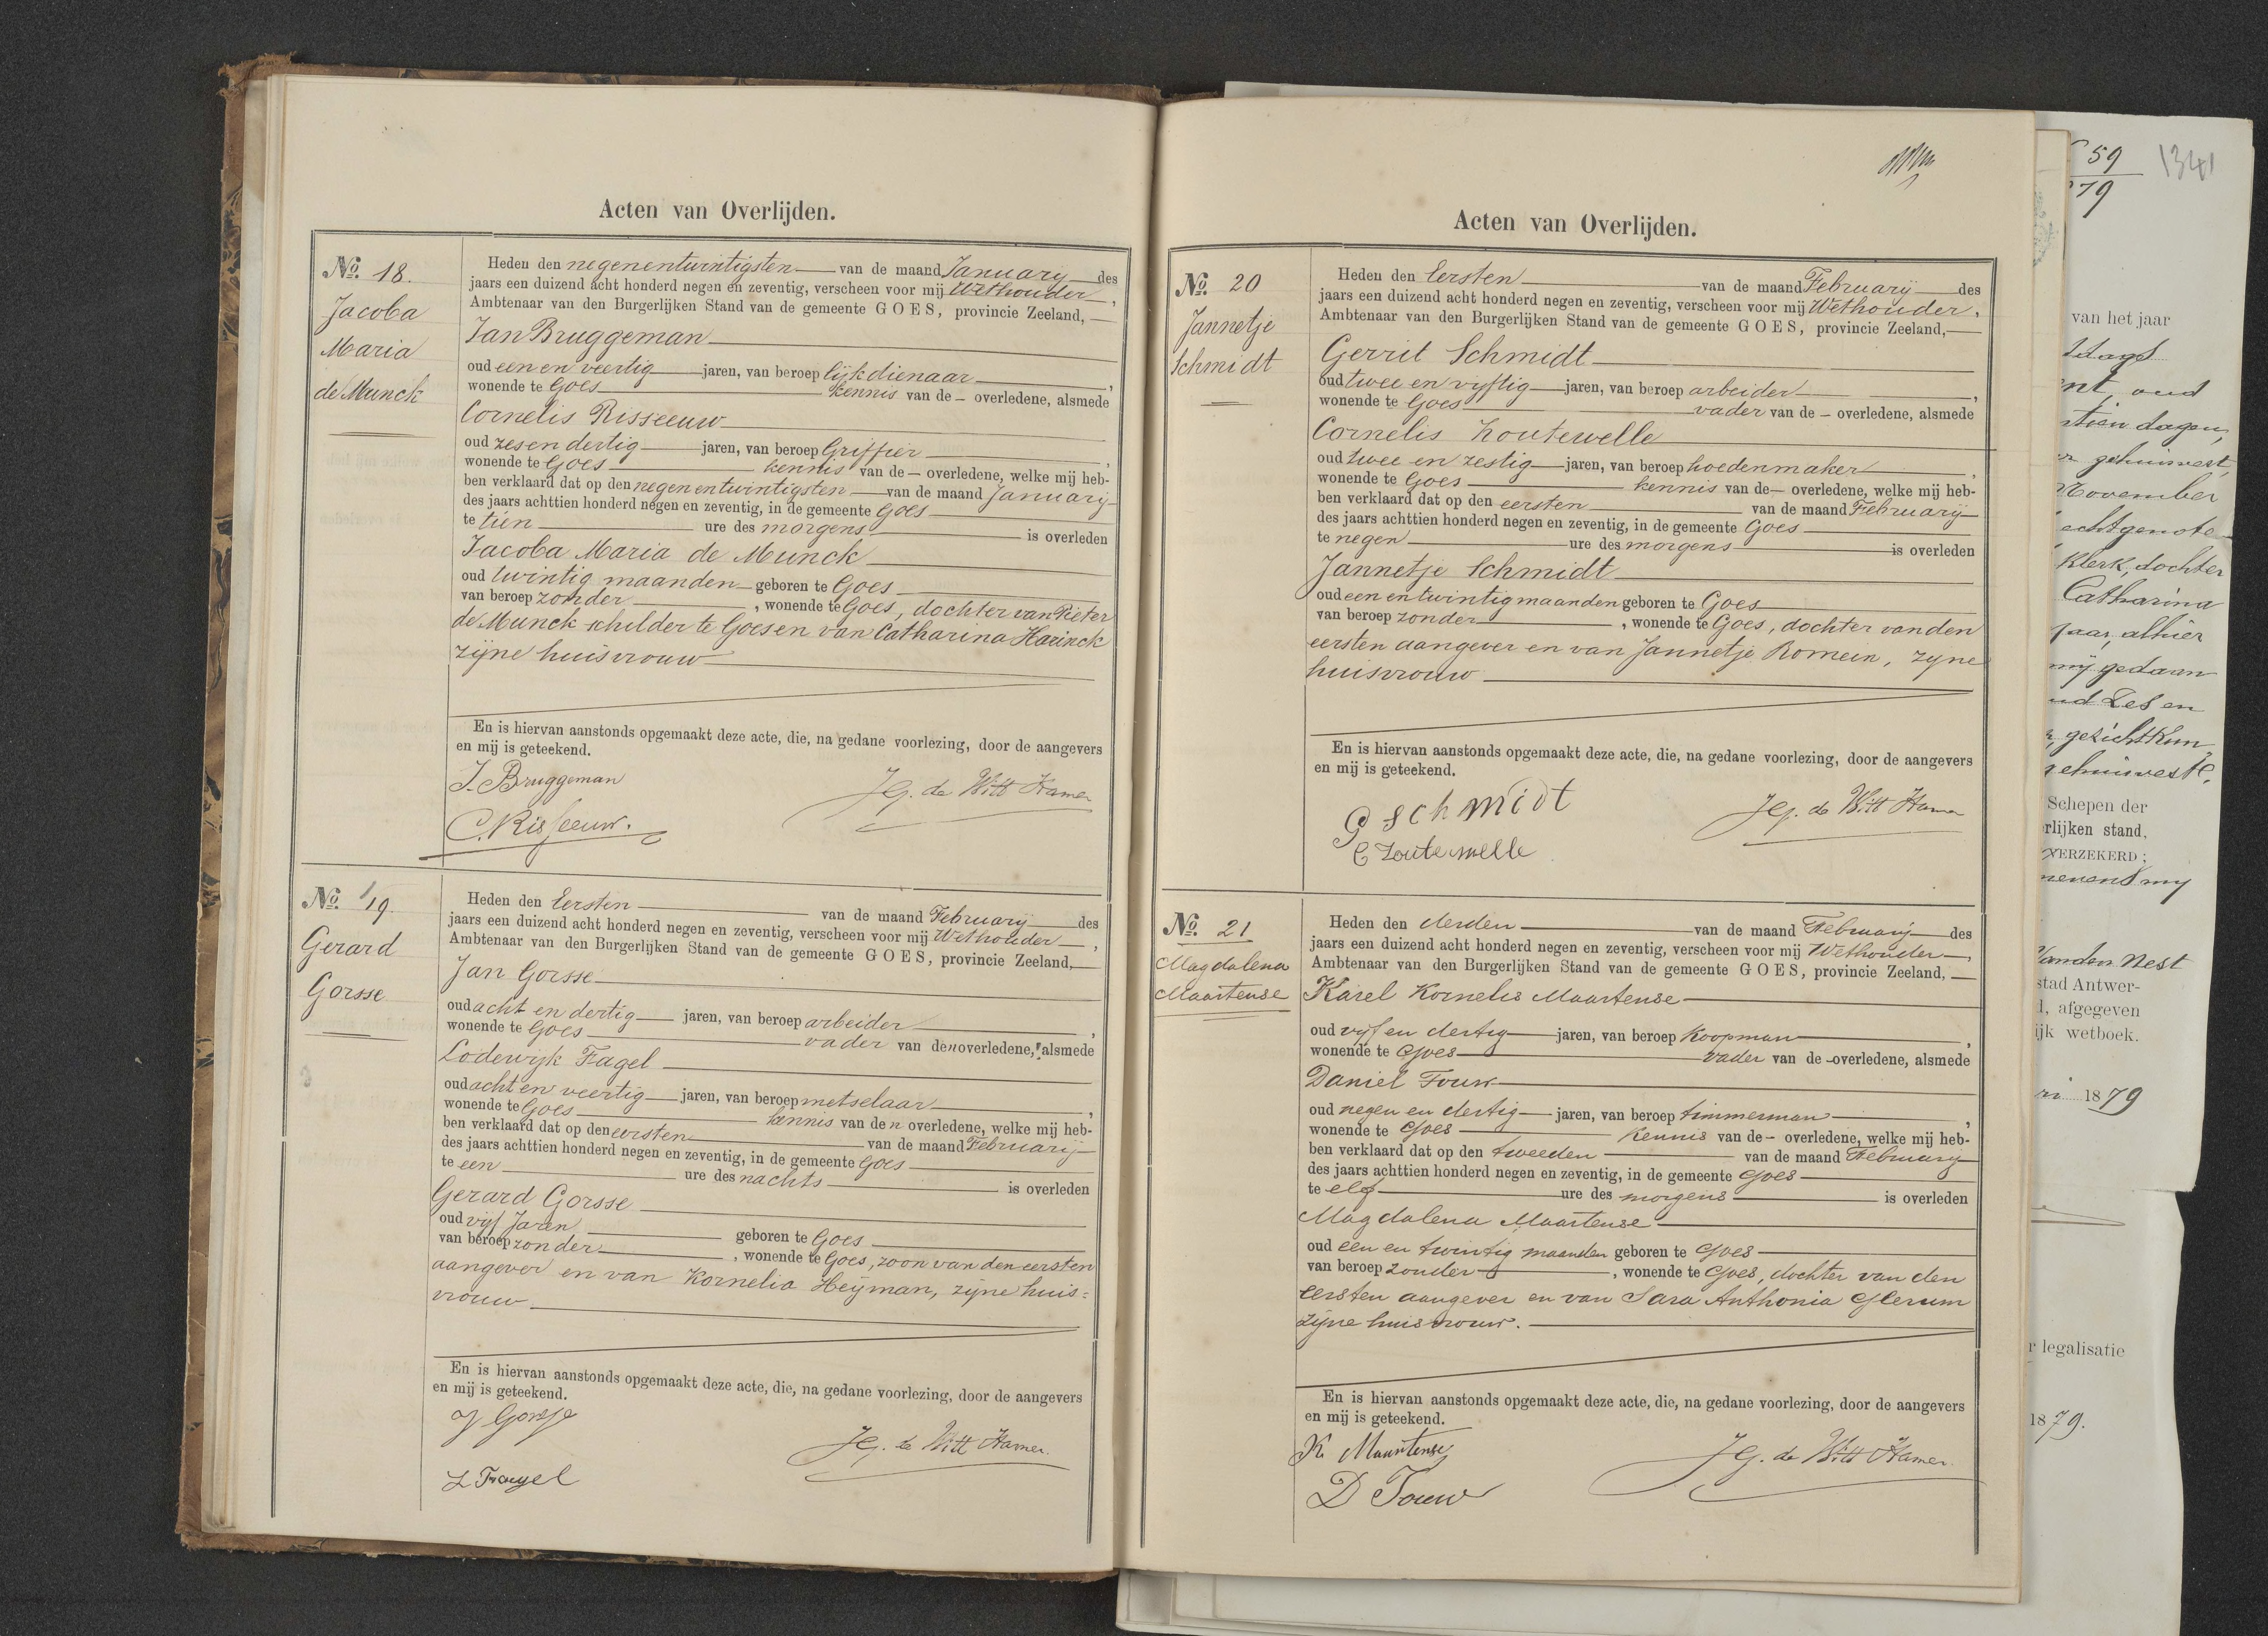 Acten van Overlijden.
No. 18.
Jacoba
Maria
de Munck
Heden den negenentwintigsten van de maand January des
jaars een duizend acht honderd negen en zeventig, verscheen voor mij Wethouder,
Ambtenaar van den Burgerlijken Stand van de gemeente GOES, provincie Zeeland,
Jan Bruggeman
oud een en veertig jaren, van beroep lijkdienaar,
wonende te Goes kennis van de - overledene, alsmede
Cornelis Risseeuw
oud zes en dertig jaren, van beroep Griffier,
wonende te Goes kennis van de - overledene, welke mij heb-
ben verklaard dat op den negen en twintigsten van de maand January
des jaars achttien honderd negen en zeventig, in de gemeente Goes
te tien ure des morgens is overleden
Jacoba Maria de Munck
oud twintig maanden geboren te Goes
van beroep zonder, wonende te Goes, dochter van Pieter
de Munck schilder te Goes en van Catharina Harinck
zijne huisvrouw
En is hiervan aanstonds opgemaakt deze acte, die, na gedane voorlezing, door de aangevers
en mij is geteekend.
J. Bruggeman
JG. de Witt Hamer
C. Risseeuw.
No. 19.
Gerard
Gorsse
Heden den Eersten van de maand February des
jaars een duizend acht honderd negen en zeventig, verscheen voor mij Wethouder,
Ambtenaar van den Burgerlijken Stand van de gemeente GOES, provincie Zeeland,
Jan Gorsse
oud acht en dertig jaren, van beroep arbeider,
wonende te Goes vader van den overledene, alsmede
Lodewijk Fagel
oud acht en veertig jaren, van beroep metselaar,
wonende te Goes kennis van den overledene, welke mij heb-
ben verklaard dat op den eersten van de maand February
des jaars achttien honderd negen en zeventig, in de gemeente Goes
te een ure des nachts is overleden
Gerard Gorsse
oud vijf Jaren geboren te Goes
van beroep zonder, wonende te Goes, zoon van den eersten
aangever en van Kornelia Heijman, zijne huis=
vrouw
En is hiervan aanstonds opgemaakt deze acte, die, na gedane voorlezing, door de aangevers
en mij is geteekend.
J Gorsse
JG. de Witt Hamer.
L Fragel
Acten van Overlijden.
No. 20
Jannetje
Schmidt
Heden den Eersten van de maand February des
jaars een duizend acht honderd negen en zeventig, verscheen voor mij Wethouder,
Ambtenaar van den Burgerlijken Stand van de gemeente GOES, provincie Zeeland,
Gerrit Schmidt
oud twee en vijftig jaren, van beroep arbeider,
wonende te Goes vader van de - overledene, alsmede
Cornelis Zoutewelle
oud twee en zestig jaren, van beroep hoedenmaker,
wonende te Goes kennis van de - overledene, welke mij heb-
ben verklaard dat op den eersten van de maand February
des jaars achttien honderd negen en zeventig, in de gemeente Goes
te negen ure des morgens is overleden
Jannetje Schmidt
oud een en twintig maanden geboren te Goes
van beroep zonder, wonende te Goes, dochter van den
eersten aangever en van Jannetje Romein, zyne
huisvrouw
En is hiervan aanstonds opgemaakt deze acte, die, na gedane voorlezing, door de aangevers
en mij is geteekend.
G schmidt
JG. de Witt Hamer
C Zoutewelle
No. 21
Magdalena
Maartense
Heden den derden van de maand February des
jaars een duizend acht honderd negen en zeventig, verscheen voor mij Wethouder,
Ambtenaar van den Burgerlijken Stand van de gemeente GOES, provincie Zeeland,
Karel Kornelis Maartense
oud vijf en dertig jaren, van beroep Koopman,
wonende te Goes vader van de - overledene, alsmede
Daniel Touw
oud negen en dertig jaren, van beroep timmerman,
wonende te Goes Kennis van de - overledene, welke mij heb-
ben verklaard dat op den tweeden van de maand February
des jaars achttien honderd negen en zeventig, in de gemeente Goes
te elf ure des morgens is overleden
Magdalena Maartense
oud een en twintig maanden geboren te Goes
van beroep zonder, wonende te Goes, dochter van den
eersten aangever en van Sara Anthonia Glerum
zijne huisvrouw.
En is hiervan aanstonds opgemaakt deze acte, die, na gedane voorlezing, door de aangevers
en mij is geteekend.
K. Maartense
JG. de Witt Hamer.
D Touw
59
79
1341
van het jaar
oud
dagen,
gehuwvest
November
echtgenote
Klerk, dochter
Catharina
jaar, alhier
mij gedaan
Zes en
gezichtkun
Schepen der
rlijken stand,
VERZEKERD;
nevens my
Vanden Nest
stad Antwer-
d, afgegeven
ijk wetboek.
1879
r legalisatie
1879.